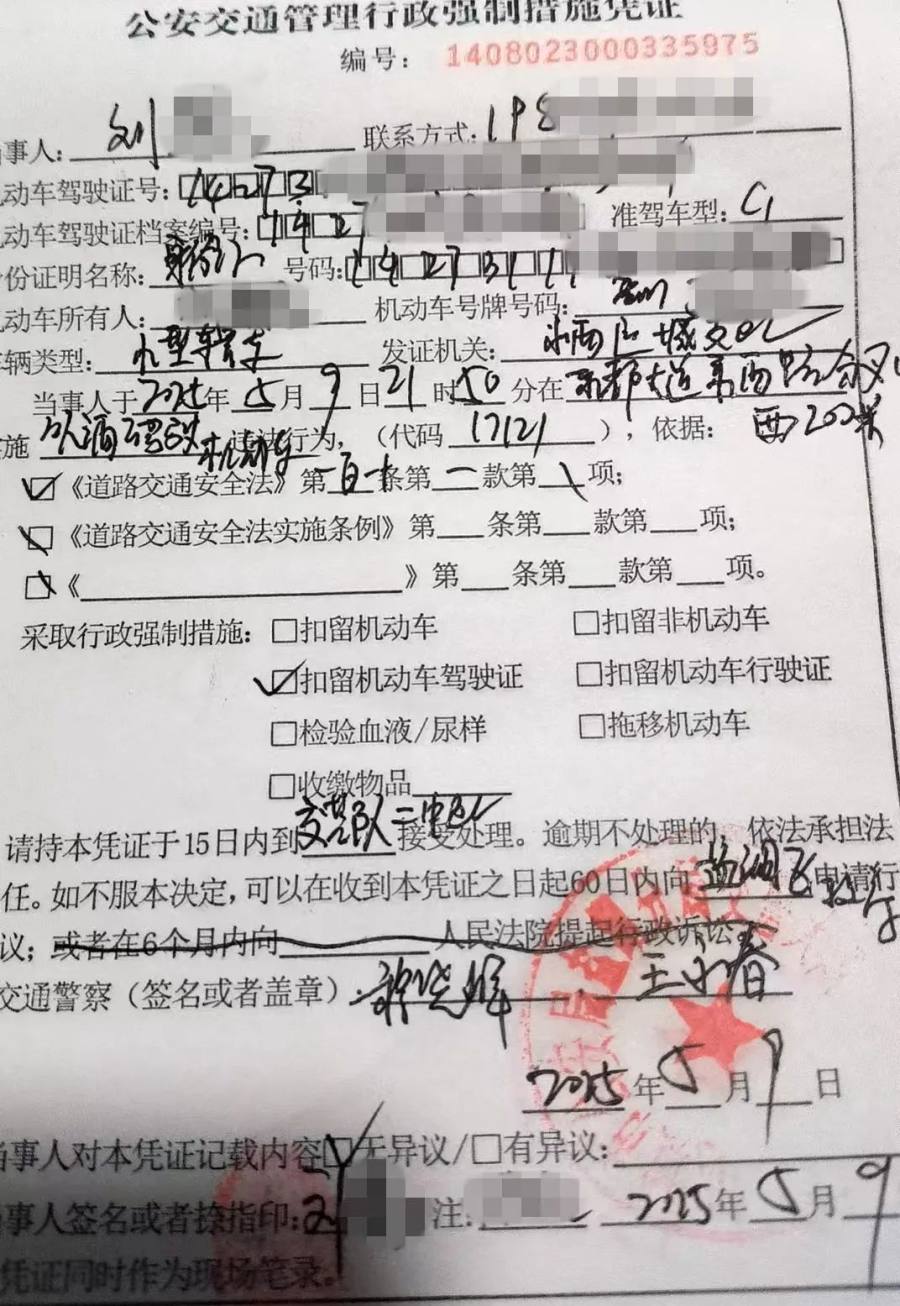 公安交通管理行政强制措施凭证
编号： 1408023000335975
当事人: 刘 联系方式:
机动车驾驶证号: 14273
机动车驾驶证档案编号: 142 准驾车型: C1
身份证明名称: 身份证 号码: 1427311
机动车所有人: 机动车号牌号码:
车辆类型: 小型轿车 发证机关:
当事人于2025年5月9日21时50分在
西200米
实施 饮酒驾驶机动车 违法行为，（代码 17121 ），依据:
《道路交通安全法》第 条第一款第\项;
《道路交通安全法实施条例》第___条第___款第___项;
《 》第___条第___款第___项。
采取行政强制措施: □扣留机动车 □扣留非机动车
☑扣留机动车驾驶证 □扣留机动车行驶证
□检验血液/尿样 □拖移机动车
□收缴物品
请持本凭证于15日内到交警队二中队接受处理。逾期不处理的，依法承担法
任。如不服本决定，可以在收到本凭证之日起60日内向盐湖区政府申请行
议；或者在6个月内向 人民法院提起行政诉讼。
交通警察（签名或者盖章） 王 春
2025年5月9日
当事人对本凭证记载内容☑无异议/□有异议:
当事人签名或者捺指印: 刘 注: 2025年5月9
凭证同时作为现场笔录。